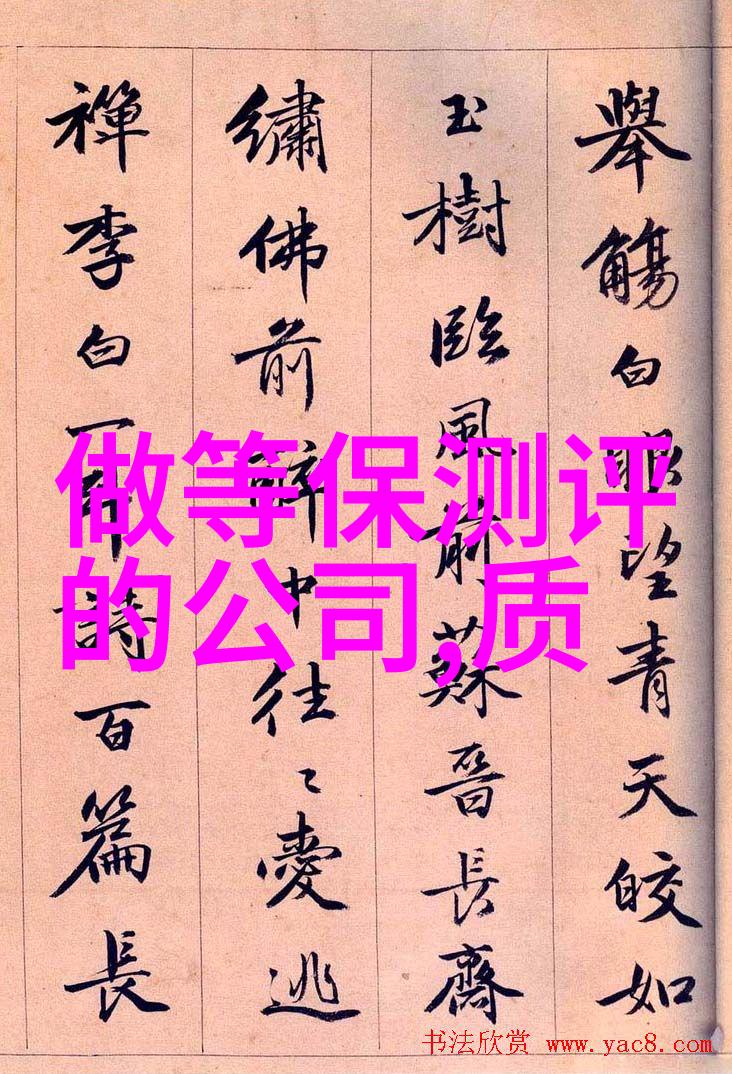 舉觴白眼望青天皎如
玉樹臨風前蘇晉長齋
繡佛前醉中往〻愛逃
禪李白一斗詩百篇長
做等保测评
的公司,质
书法欣赏 www.yac8.com